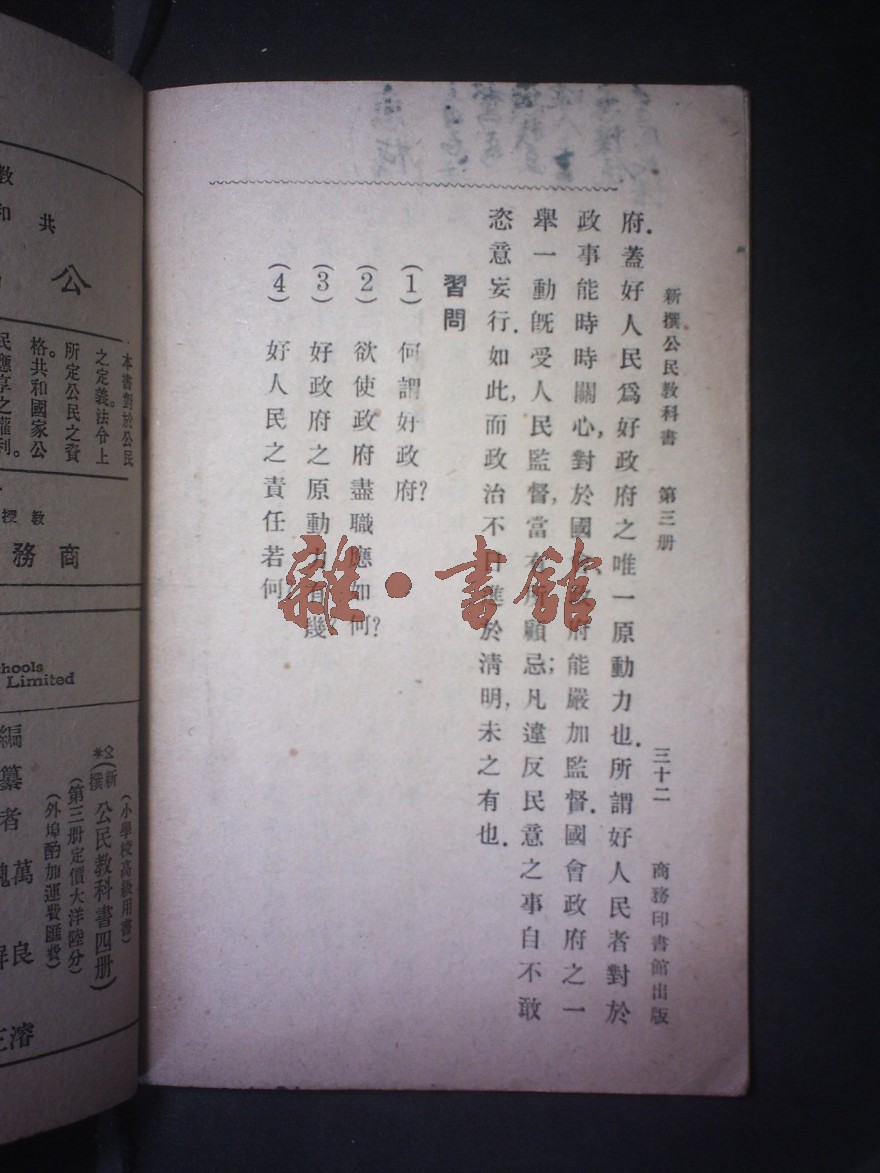 新撰公民教科書 第三册 三十二 商務印書館出版
府.蓋好人民爲好政府之唯一原動力也.所謂好人民者對於
政事能時時關心,對於國會政府能嚴加監督.國會政府之一
舉一動既受人民監督,當有所顧忌;凡違反民意之事自不敢
恣意妄行.如此,而政治不日進於清明,未之有也.
習問
(1) 何謂好政府?
(2) 欲使政府盡職應如何?
(3) 好政府之原動力有幾?
(4) 好人民之責任若何
雜·書館
教
共和
公
本書對於公民
之定義法令上
所定公民之資
格。共和國家公
民應享之權利。
教授
商務
hools
Limited
(小學校高級用書)
(新撰 公民教科書四册)
(第三册定價大洋陸分)
(外埠酌加運費匯費)
編纂者 萬良濬